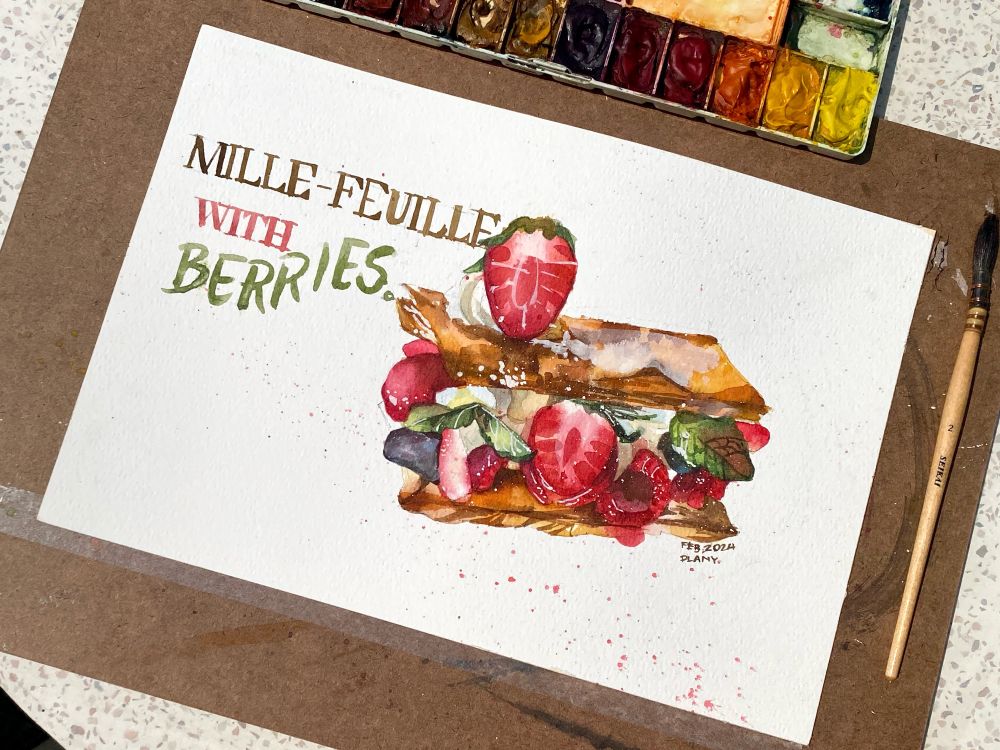 MILLE-FEUILLE
WITH
BERRIES.
FEB,2024
DLANY.
2 SEIKAI